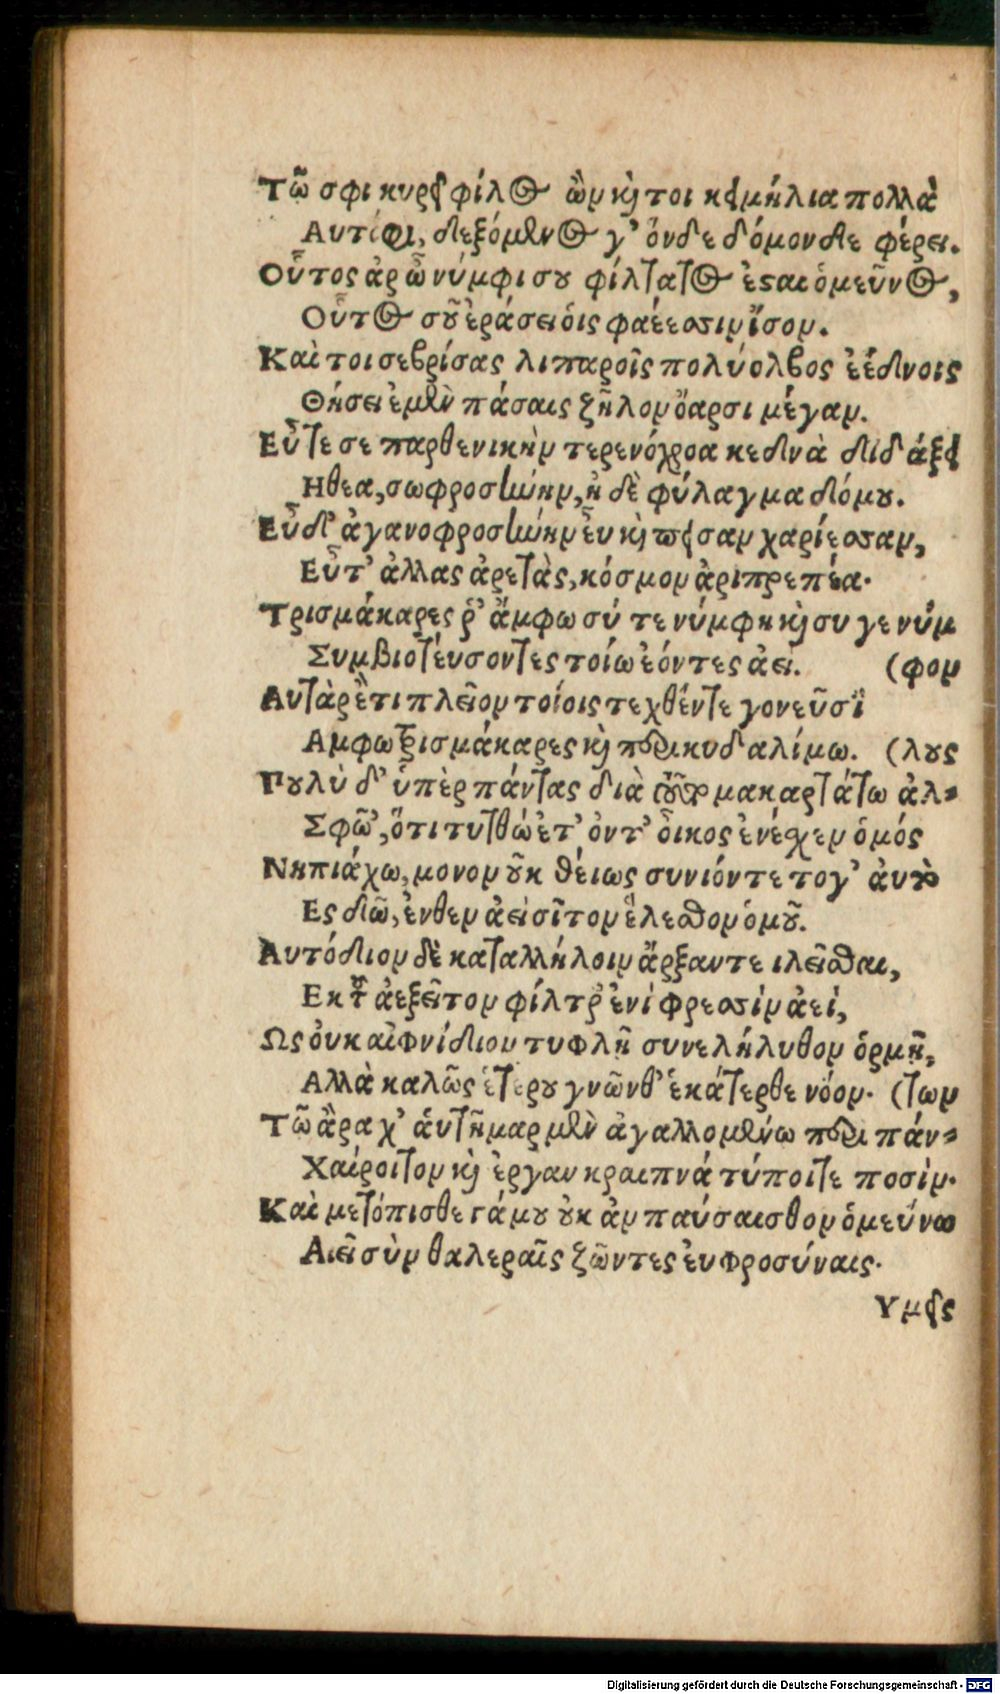 Τῶ σφι κυρεῖ φίλος ὢν καὶ τοι κειμήλια πολλὰ
Αυτίφι, δεξόμενος γ' ὄνδε δόμονδε φέρει.
Οὗτος ἀρ ὦ νύμφι σου φίλτατος ἐσαι ὁμεῦνος,
Οὗτος σοῦ ἐράσει ὁις φαέεσσιν ἴσον.
Καὶ τοι σεβρίσας λιπαροῖς πολύολβος ἐέδνοις
Θήσει ἐμὲν πάσαις ζῆλον ὄαρσι μέγαν.
Εὖτε σε παρθενικὴν τερενόχροα κεδνὰ διδάξει
Ηθεα, σωφροσύνην, ἠ δὲ φύλαγμα δόμου.
Εὖδ' ἀγανοφροσύνην ἐυ καὶ πεῖσαν χαρίεσσαν,
Εὖτ' ἀλλας ἀρετὰς, κόσμον ἀριπρεπέα.
Τρισμάκαρες ῥ' ἄμφω σύ τε νύμφη καὶ συ γε νύμ
Συμβιοτέυσοντες τοίω ἐόντες ἀεί. (φον
Αυτὰρ ἔτι πλεῖον τοίοις τεχθέντε γονεῦσϊ
Αμφω τρισμάκαρες καὶ περικυδαλίμω. (λους
Πουλὺ δ' ὑπὲρ πάντας διὰ τοῦτο μακαρτάτω ἀλ-
Σφῶ', ὅτι τυτθὼ ἐτ' ὀντ' ὀικος ἐνέσχεν ὁμός
Νηπιάχω, μονονοῦκ θείως συνιόντε τογ' ἀυτὸ
Ες δῶ, ἐνθεν ἀεὶ σῖτον ἕλεσθον ὁμοῦ.
Αυτόδιον δὲ καταλλήλοιν ἄρξαντε ιλεῖσθαι,
Εκ τοῦ ἀεξεῖτον φίλτρ' ἐνὶ φρεσσὶν ἀεὶ,
Ως ὀυκ αἰφνίδιον τυφλῇ συνελήλυθον ὁρμῇ,
Αλλὰ καλῶς ἑτέρου γνῶνθ' ἑκάτερθε νόον. (των
Τῶ ἄρα χ' ἁυτῆμαρ μὲν ἀγαλλομένω περι πάν-
Χαίροιτον καὶ ἐργαν κραιπνά τύποιτε ποσὶν.
Καὶ μετόπισθε γάμου ουκ ἀν παύσαισθον ὁμεύνω
Αιεῖ σὺν θαλεραῖς ζῶντες ἐυφροσύναις.
Υμεῖς
Digitalisierung gefördert durch die Deutsche Forschungsgemeinschaft - DFG